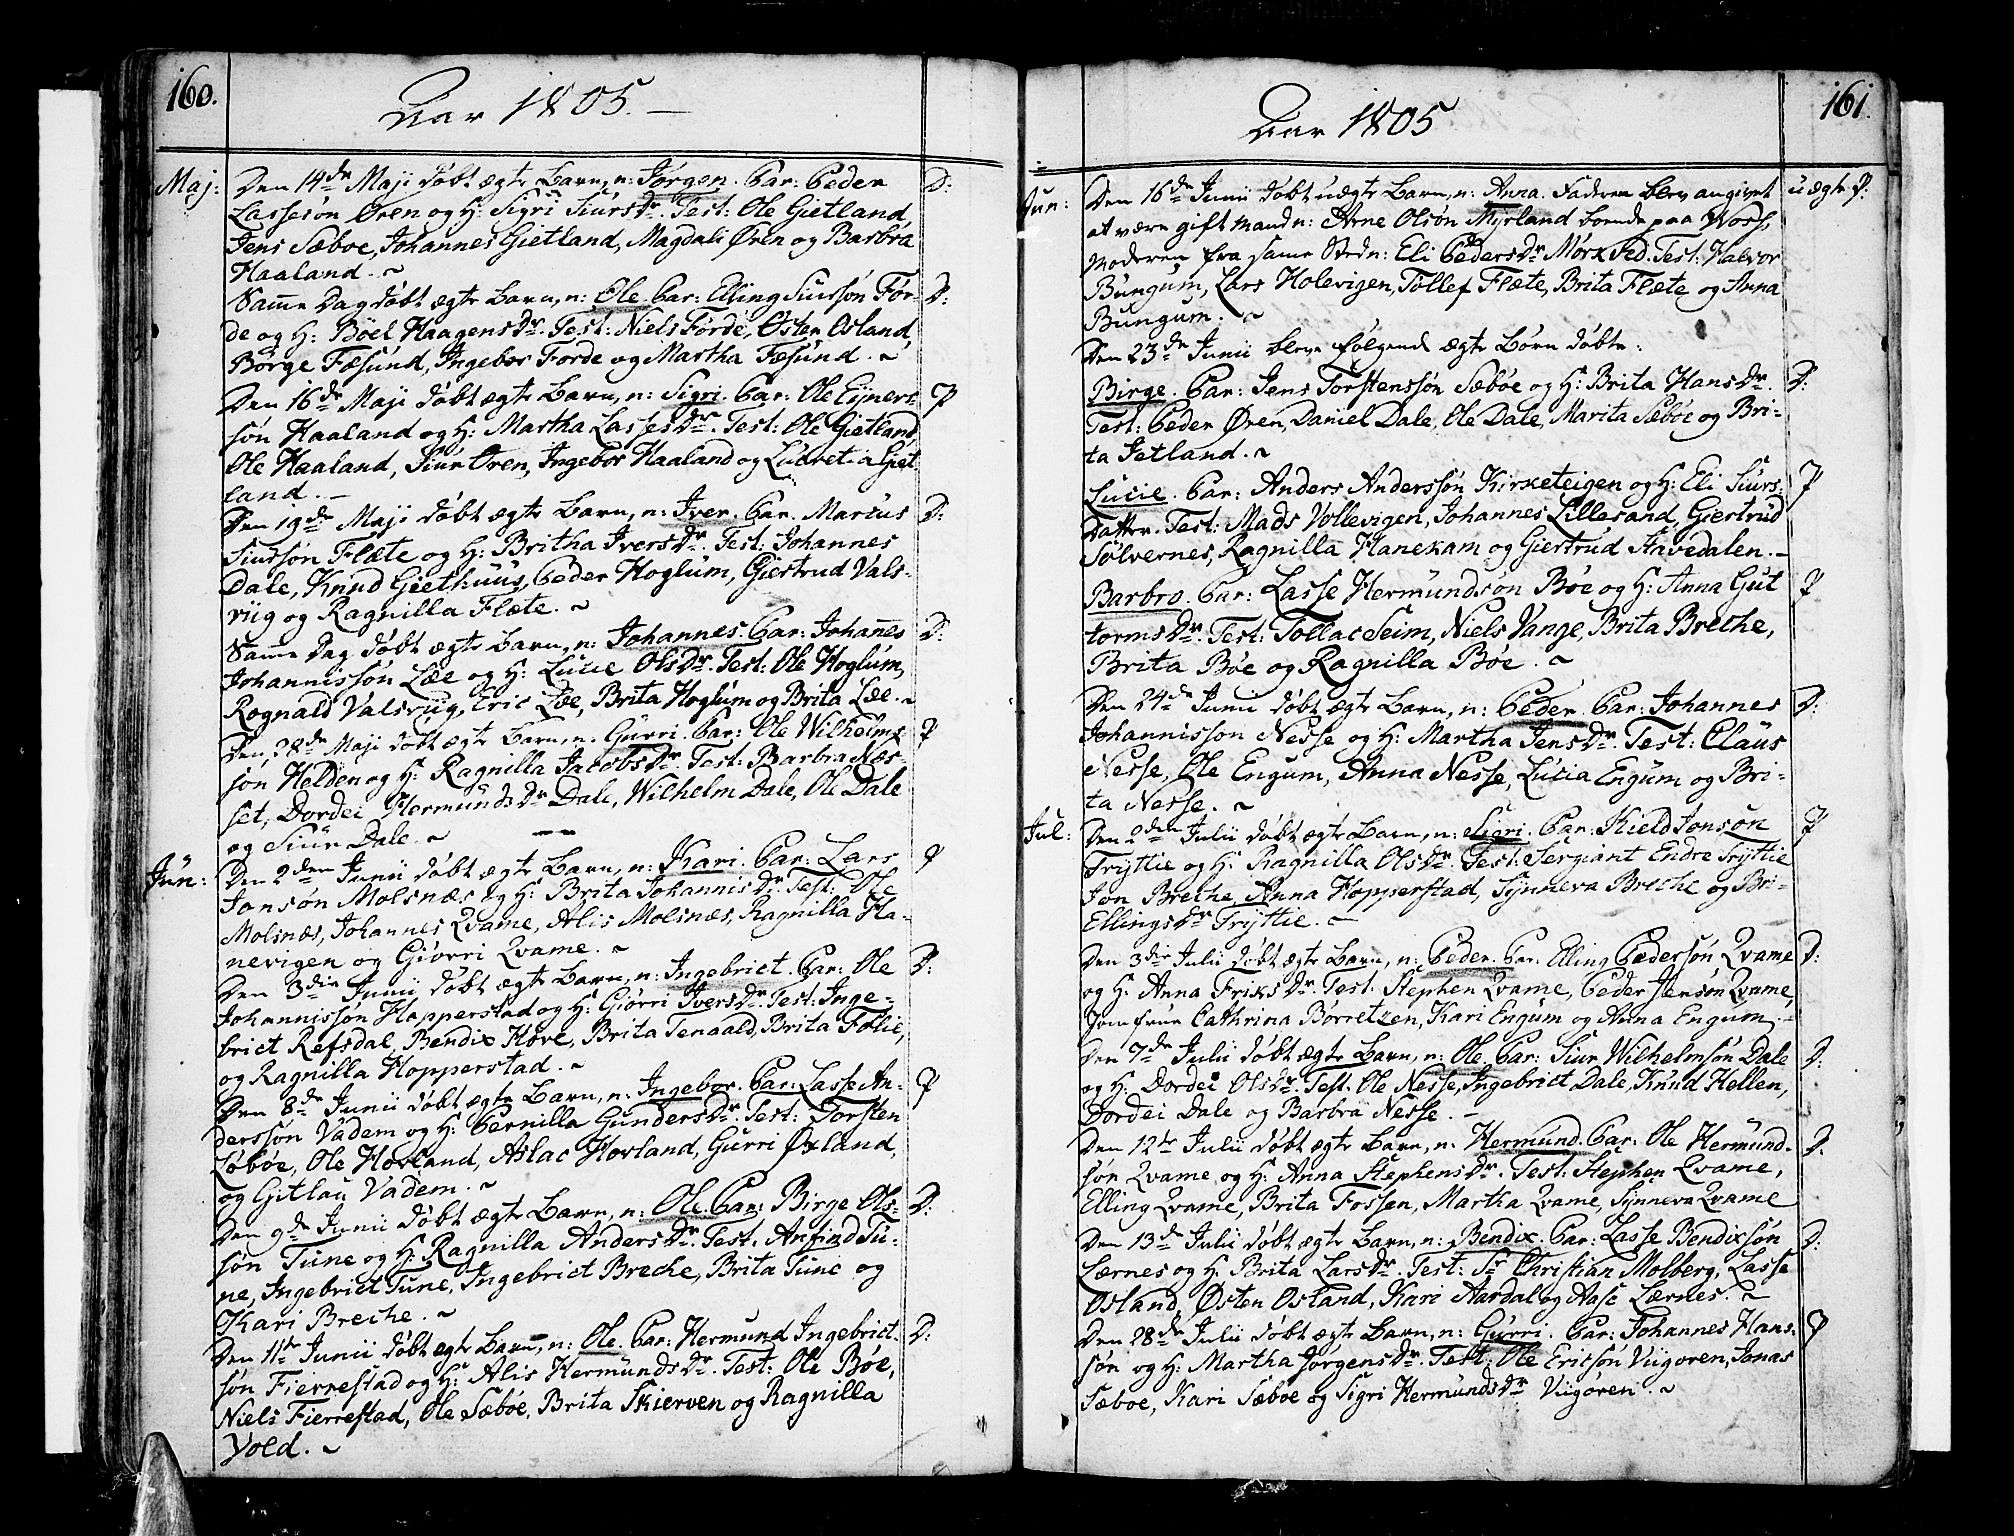 160.
Aar 1805. —
Maj: Den 14de Maji døbt ægte Barn, n: Jørgen. Par: Peder D:
Lassesøn Øren og H: Sigri Siursdr. Test: Ole Gietland,
Jens Sæbøe, Johannes Gietland, Magdali Øren og Barbra
Haaland. ~
Samme Dag døbt ægte Barn, n: Ole. Par: Elling Siursøn För- D:
de og H: Böel Haagensdr. Test: Niels Förde, Østen Osland,
Börge Fæsund, Ingebor Forde og Martha Fæsund. ~
Den 16de Maji døbt ægte Barn, n: Sigri. Par: Ole Ejnert P
søn Haaland og H: Martha Lassesdr. Test: Ole Gietland,
Ole Haaland, Siur Øren, Ingebor Haaland og Lucretia Giet
land. —
Den 19de Maji døbt ægte Barn, n: Iver. Par: Marcus D:
Siursson Flæte og H: Britha Iversdr. Test: Johannes
Dale, Knud Gieethuus, Peder Hoglum, Giertrud Vals-
viig og Ragnilla Flæte. ~
Samme Dag døbt ægte Barn, n: Johannes. Par: Johanes D:
Johannissøn Læe og H: Lucie Olsdr. Test: Ole Hoglum,
Rognald Valsviig, Eric Læe, Brita Hoglum og Brita Læe. ~
Den 28de Maji døbt ægte Barn, n: Gurri. Par: Ole Wilhelms P
søn Helden og H: Ragnilla Jacobsdr. Test: Barbra Næs-
set, Dordei Hermundsdr Dale, Wilhelm Dale, Ole Dale
og Siur Dale. ~
Jun: Den 2den Junii døbt ægte Barn, n: Kari. Par: Lars P
Jonsøn Molsnæs og H: Brita Johannisdr. Test: Ole
Molsnæs, Johannes Qvame, Alis Molsnæs, Ragnilla Ha-
nevigen og Giörri Qvame. ~
Den 3die Junii døbt ægte Barn, n: Ingebrict. Par: Ole D:
Johannissøn Hopperstad og H: Giörri Iversdr. Test: Inge-
brict Refsdal, Bendix Hove, Brita Tenaald, Brita Folie,
og Ragnilla Hopperstad. ~
Den 8de Junii døbt ægte Barn, n: Ingebor. Par: Lasse An- P
derssøn Vadem og H: Pernilla Gundersdr. Test: Torsten
Løbøe, Ole Hovland, Aslac Hovland, Gurri Øxland,
og Gitlau Vadem. ~
Den 9de Junii døbt ægte Barn, n: Ole. Par: Birge Ols- D:
søn Tune og H: Ragnilla Andersdr. Test: Anfind Tu-
ne, Ingebrict Tune, Ingebrict Breche, Brita Tune og
Kari Breche. ~
Den 11te Junii døbt ægte Barn, n: Ole. Par: Hermund Ingebrict- D:
søn Fierrestad og H: Alis Hermundsdr. Test: Ole Böe,
Niels Fierrestad, Ole Sæbøe, Brita Skierven og Ragnilla
Vold. ~
161.
Aar 1805
Jun: Den 16de Junii døbt uægte Barn, n: Anna. Faderen blev angivet uægte P:
at være gift Mand n: Arne Olsøn Myrland boende paa Woss,
Moderen fra samme Sted n: Eli Pedersdr Mörkved. Test: Halvor
Bungum, Lars Holevigen, Tollef Flæte, Brita Flæte og Anna
Bungum. ~
Den 23de Junii bleve følgende ægte Børn døbte:
Birge. Par: Jens Torstenssøn Sæbøe og H: Brita Hansdr. D:
Test: Peder Øren, Daniel Dale, Ole Dale, Marita Sæbøe og Bri-
ta Jetland. ~
Lucie. Par: Anders Anderssøn Kirketeigen og H: Eli Siurs- P
datter. Test: Mads Vollevigen, Johannes Lillesand, Giertrud
Sølvernes, Ragnilla Hanekam og Giertrud Arvedalen. —
Barbro. Par: Lasse Hermundsøn Bøe og H: Anna Gut P
tormsdr. Test: Tollac Seim, Niels Vange, Brita Breche,
Brita Bøe og Ragnilla Bøe. ~
Den 24de Junii døbt ægte Barn, n: Peder. Par: Johannes D:
Johannisson Nesse og H: Martha Jensdr. Test: Claus
Nesse, Ole Engum, Anna Nesse, Lucia Engum og Bri-
ta Nesse. ~
Jul: Den 2den Julii døbt ægte Barn, n: Sigri. Par: Kield Jonsøn P
Tryttie og H: Ragnilla Olsdr. Test: Sergiant Endre Tryttie
Jon Breche, Anna Hopperstad, Synneva Breche og Bri-
Ellingsdr Tryttie. —
Den 3die Julii døbt ægte Barn, n: Peder. Par: Elling Pedersøn Qvame D:
og H: Anna Friksdr. Test: Stephen Qvame, Peder Jensøn Qvame,
Jomfrue Cathrina Börretzen, Kari Engum og Anna Engum. —
Den 7de Julii døbt ægte Barn, n: Ole. Par: Siur Wilhelmsøn Dale D:
og H: Dordei Olsdr. Test: Ole Nesse, Ingebrict Dale, Knud Hellen,
Dordei Dale og Barbra Nesse. —
Den 12te Julii døbt ægte Barn, n: Hermund. Par: Ole Hermund- D:
søn Qvame og H: Anna Stephensdr. Test: Stephen Qvame,
Elling Qvame, Brita Fossen, Martha Qvame, Synneva Qvame
Den 13de Julii døbt ægte Barn, n: Bendix. Par: Lasse Bendixsøn D:
Lærnes og H: Brita Larsdr. Test: Sr Christian Molberg, Lasse
Osland, Østen Osland, Kari Aardal og Aase Lærnes. ~
Den 28de Julii døbt ægte Barn, n: Gurri. Par: Johannes Hans- P
søn og H: Martha Jørgensdr. Test: Ole Ericsøn Viigoren, Jonas
Sæbøe, Kari Sæbøe og Sigri Hermundsdr Viigøren. ~